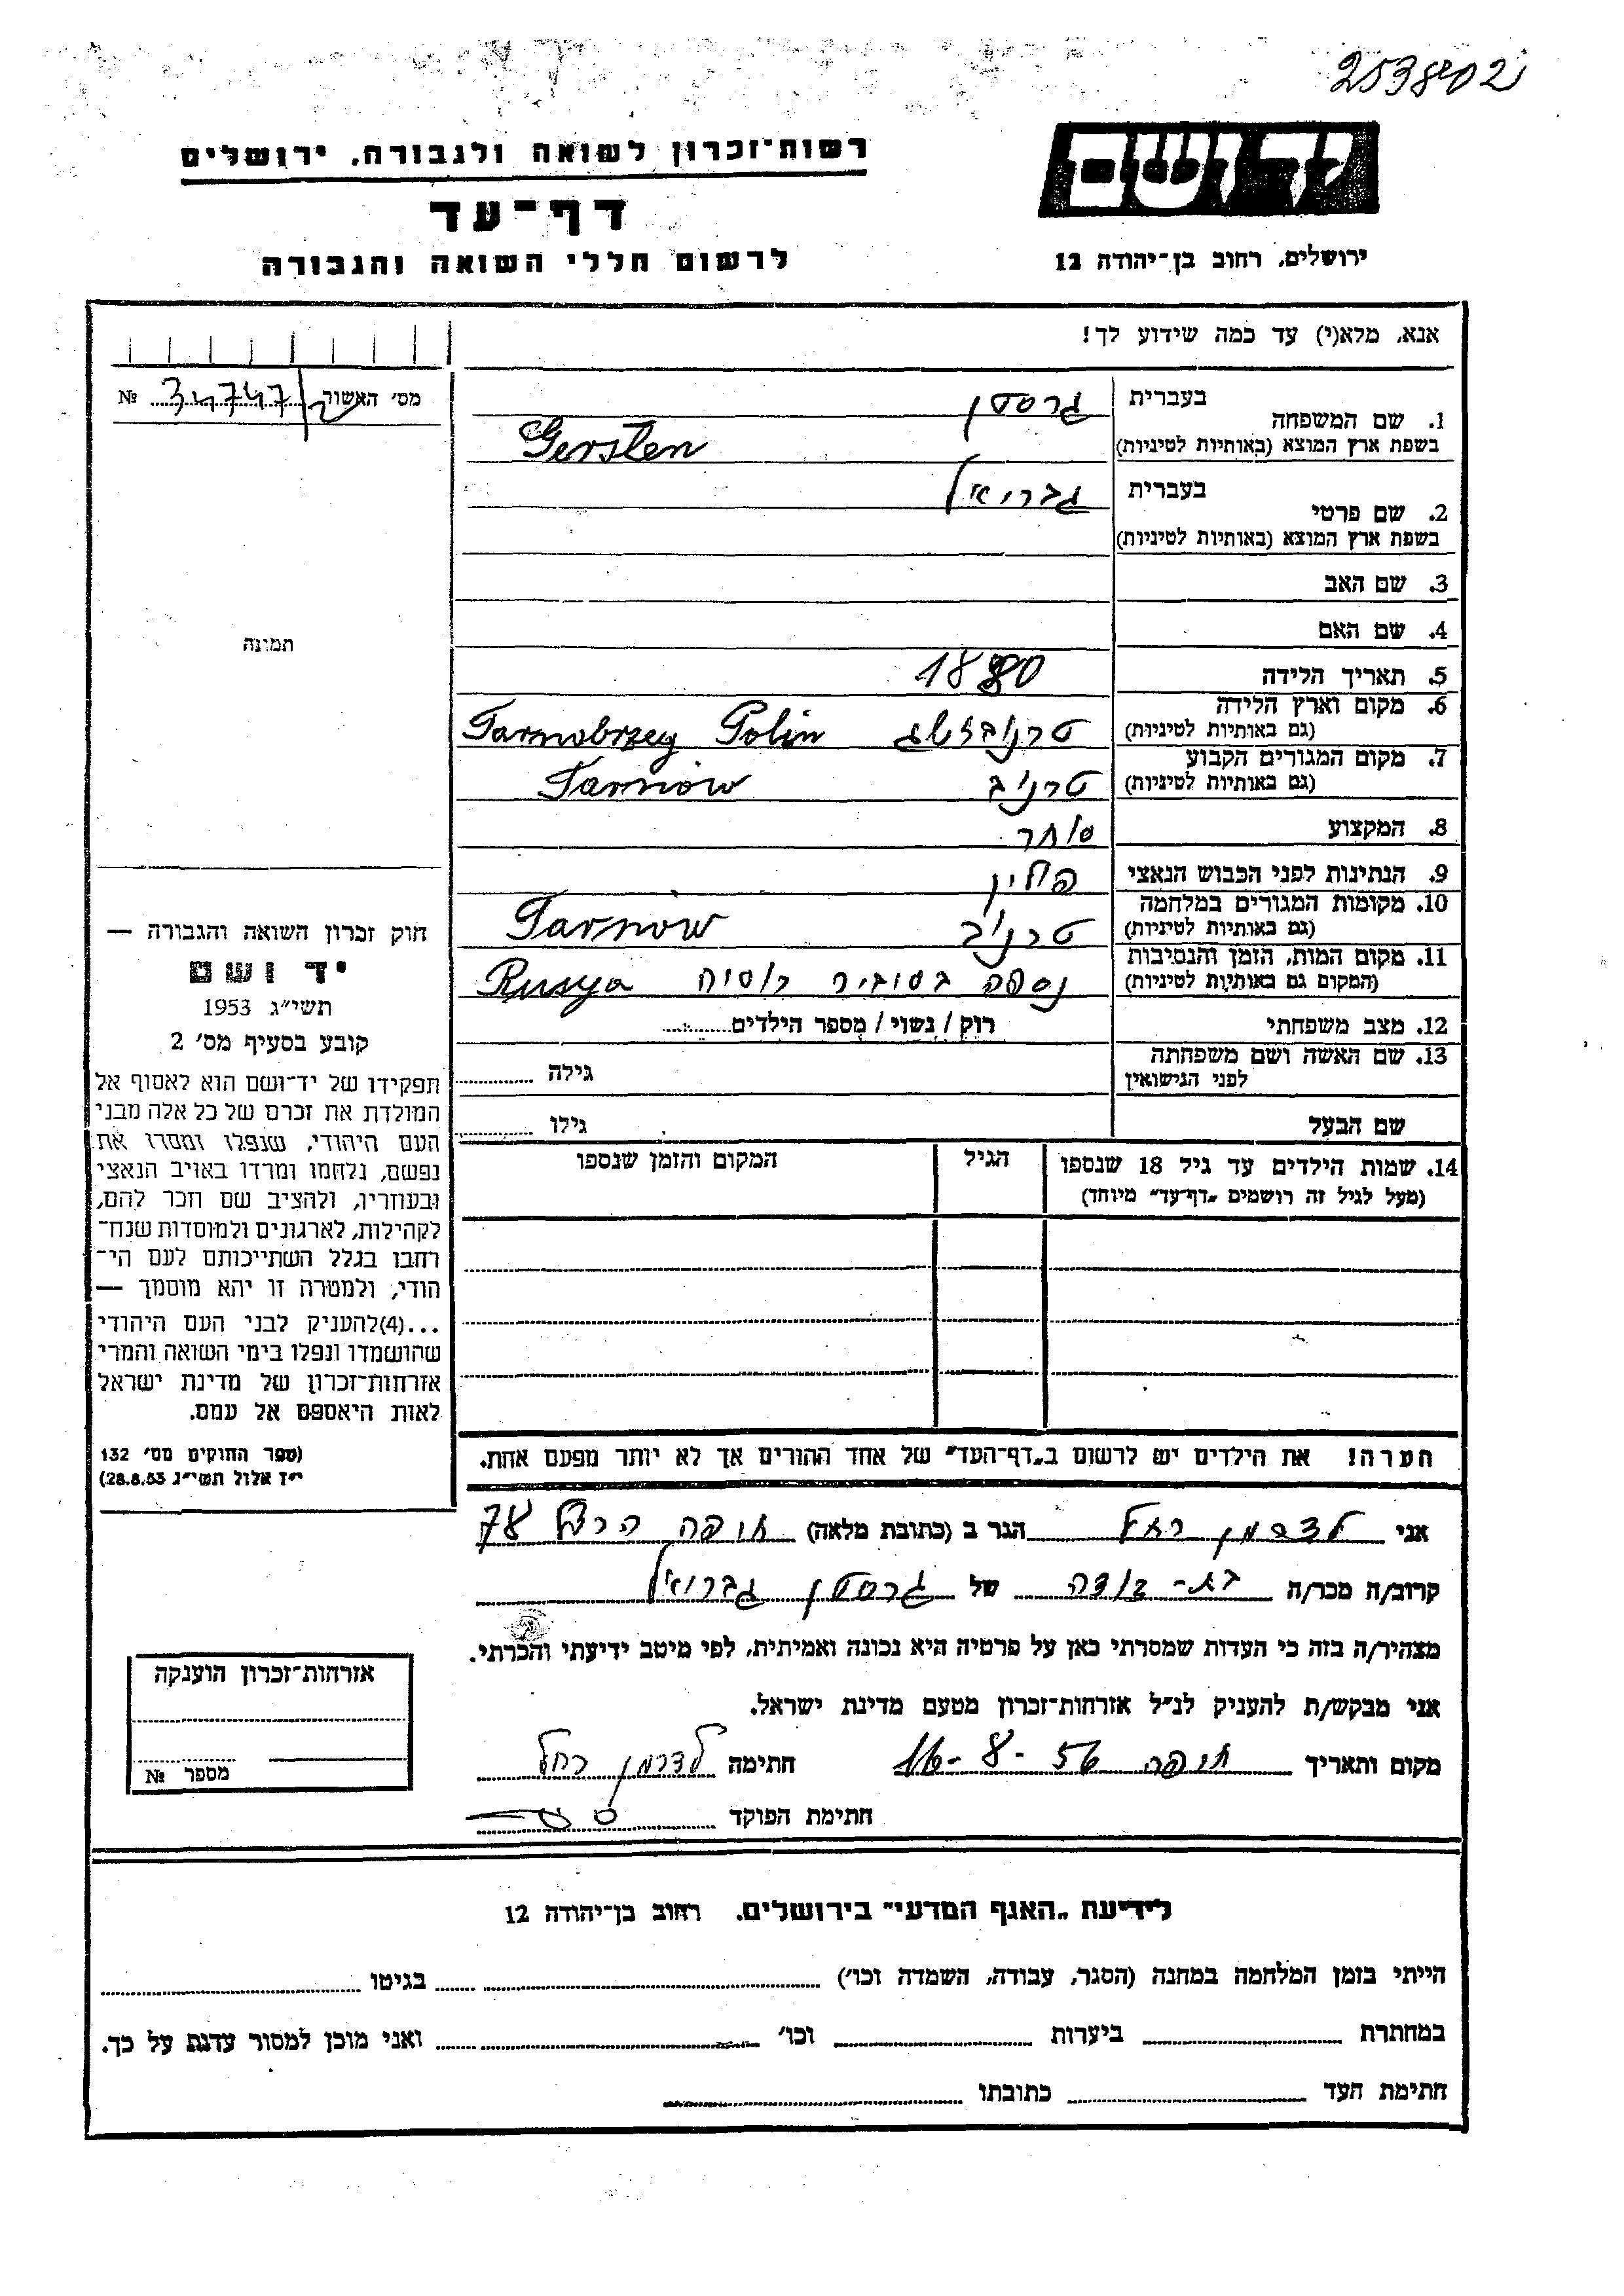 2538402
רשות־זכרון לשואה ולגבורה, ירושלים
יד ושם
דף־עד
ירושלים, רחוב בן־יהודה 12
לרשום חללי השואה והגבורה
אנא, מלא(י) עד כמה שידוע לך!
מס׳ האשור 34747 №
1. שם המשפחה
בעברית גרסטן
בשפת ארץ המוצא (באותיות לטיניות) Gersten
2. שם פרטי
בעברית גבריאל
בשפת ארץ המוצא (באותיות לטיניות)
3. שם האב
4. שם האם
תמונה
5. תאריך הלידה 1880
6. מקום וארץ הלידה
(גם באותיות לטיניות) טרנובז׳ג Tarnobrzeg Polin
7. מקום המגורים הקבוע
(גם באותיות לטיניות) טרנוב Tarnow
8. המקצוע סוחר
9. הנתינות לפני הכבוש הנאצי פולין
10. מקומות המגורים במלחמה
(גם באותיות לטיניות) טרנוב Tarnow
11. מקום המות, הזמן והנסיבות
(המקום גם באותיות לטיניות) נספה בסיביר רוסיה Rusya
12. מצב משפחתי רוק / נשוי / מספר הילדים
13. שם האשה ושם משפחתה
לפני הנישואין גילה
שם הבעל גילו
14. שמות הילדים עד גיל 18 שנספו הגיל המקום והזמן שנספו
(מעל לגיל זה רושמים „דף־עד״ מיוחד)
חוק זכרון השואה והגבורה —
יד ושם
תשי״ג 1953
קובע בסעיף מס׳ 2
תפקידו של יד־ושם הוא לאסוף אל
המולדת את זכרם של כל אלה מבני
העם היהודי, שנפלו ומסרו את
נפשם, נלחמו ומרדו באויב הנאצי
ובעוזריו, ולהציב שם וזכר להם,
לקהילות, לארגונים ולמוסדות שנח־
רבו בגלל השתייכותם לעם הי־
הודי, ולמטרה זו יהא מוסמך —
...(4)להעניק לבני העם היהודי
שהושמדו ונפלו בימי השואה והמרי
אזרחות־זכרון של מדינת ישראל
לאות היאספם אל עמם.
(ספר החוקים מס׳ 132
י״ז אלול תשי״ג 28.8.53)
הערה! את הילדים יש לרשום ב„דף־העד״ של אחד ההורים אך לא יותר מפעם אחת.
אני לדרמן רחל הגר ב (כתובת מלאה) חיפה הרצל 78
קרוב/ה מכר/ה בת-דודה של גרסטן גבריאל
מצהיר/ה בזה כי העדות שמסרתי כאן על פרטיה היא נכונה ואמיתית, לפי מיטב ידיעתי והכרתי.
אני מבקש/ת להעניק לנ״ל אזרחות־זכרון מטעם מדינת ישראל.
מקום ותאריך חיפה 16-8-56 חתימה לדרמן רחל
חתימת הפוקד
אזרחות־זכרון הוענקה
מספר №
לידיעת „האגף המדעי״ בירושלים. רחוב בן־יהודה 12
הייתי בזמן המלחמה במחנה (הסגר, עבודה, השמדה וכו׳) בגיטו
במחתרת ביערות וכו׳ ואני מוכן למסור עדות על כך.
חתימת העד כתובתו